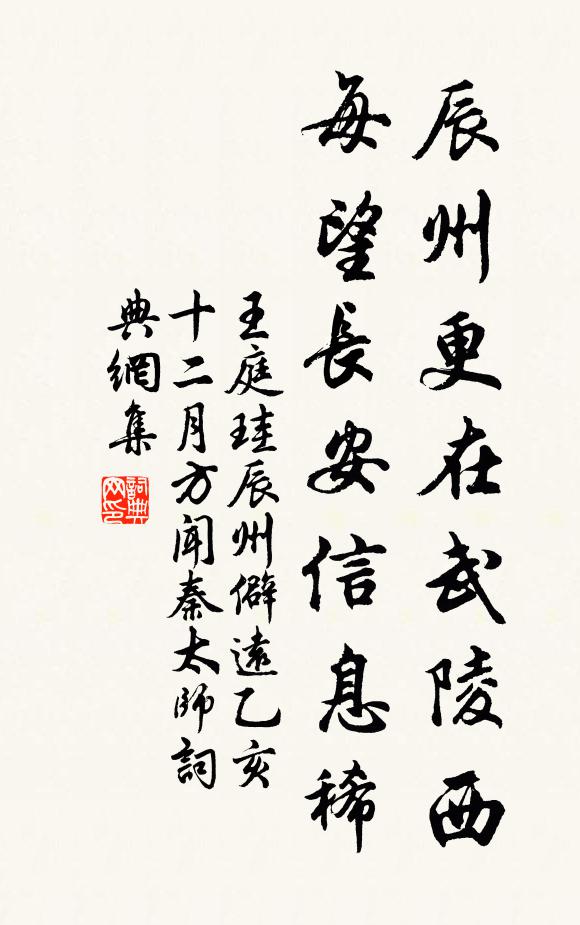 辰州更在武陵西
每望長安信息稀
王庭珪辰州僻遠乙亥
十二月方聞秦太師詞
典網集
詞典
网印